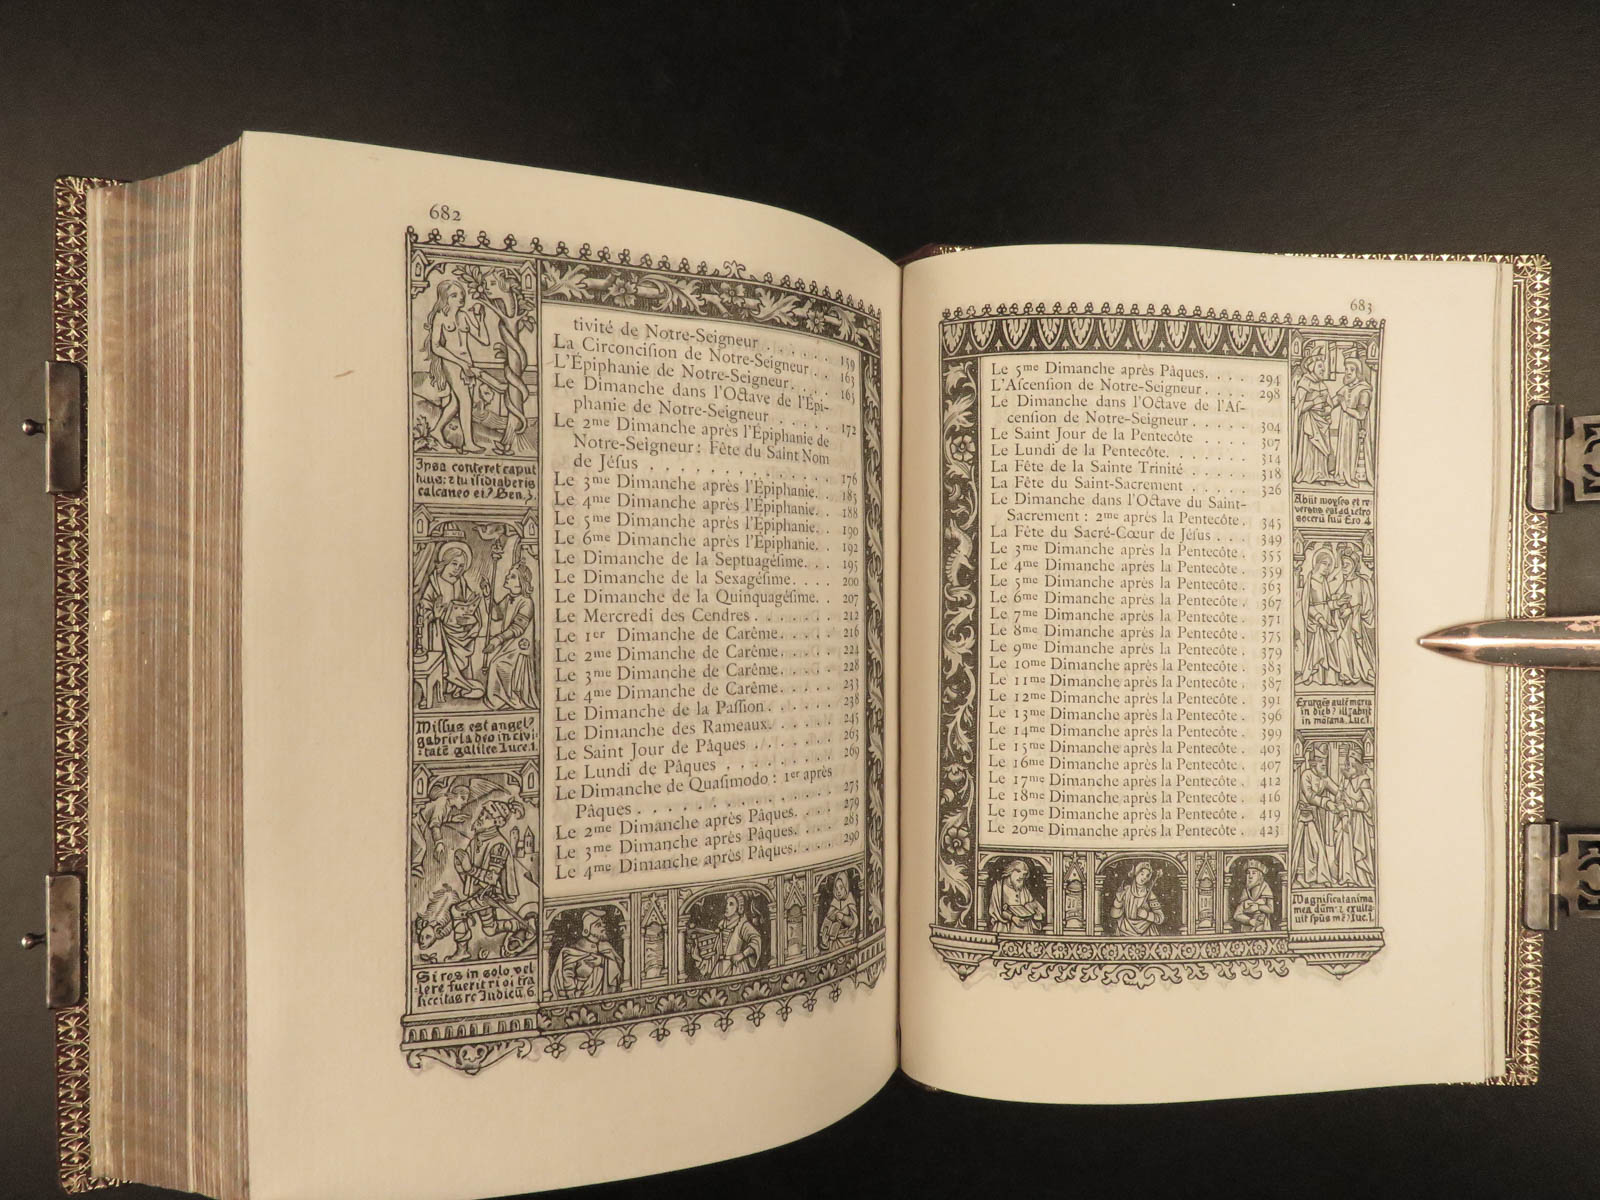 682
tivité de Notre-Seigneur . . . . . . 159
La Circoncision de Notre-Seigneur . . 163
L'Épiphanie de Notre-Seigneur. . . . 165
Le Dimanche dans l'Octave de l'Épi-
phanie de Notre-Seigneur . . . . . 172
Le 2me Dimanche après l'Épiphanie de
Notre-Seigneur : Fête du Saint Nom
de Jésus . . . . . . . . . . 176
Le 3me Dimanche après l'Épiphanie. . 185
Le 4me Dimanche après l'Épiphanie. . 188
Le 5me Dimanche après l'Épiphanie. . 190
Le 6me Dimanche après l'Épiphanie. . 192
Le Dimanche de la Septuagésime. . . 195
Le Dimanche de la Sexagésime. . . . 200
Le Dimanche de la Quinquagésime. . 207
Le Mercredi des Cendres . . . . . . 212
Le 1er Dimanche de Carême. . . . . 216
Le 2me Dimanche de Carême. . . . . 224
Le 3me Dimanche de Carême. . . . . 228
Le 4me Dimanche de Carême. . . . . 233
Le Dimanche de la Passion. . . . . . 238
Le Dimanche des Rameaux. . . . . . 245
Le Saint Jour de Pâques . . . . . . . 263
Le Lundi de Pâques . . . . . . . . . 269
Le Dimanche de Quasimodo : 1er après
Pâques . . . . . . . . . . . . . 273
Le 2me Dimanche après Pâques. . . . 279
Le 3me Dimanche après Pâques. . . . 283
Le 4me Dimanche après Pâques. . . . 290
Ipsa conteret caput
tuus: ⁊ tu isidiaberis
calcaneo ei? Gen. 3.
Missus est angel?
gabriel a deo in civi-
tatē galilee Luce. 1.
Si ros in solo vel-
lere fuerit ri oī tra
siccitas rc Judicū. 6.
683
Le 5me Dimanche après Pâques. . . . 294
L'Ascension de Notre-Seigneur . . . . 298
Le Dimanche dans l'Octave de l'As-
cension de Notre-Seigneur. . . . . 304
Le Saint Jour de la Pentecôte . . . . 307
Le Lundi de la Pentecôte. . . . . . . 314
La Fête de la Sainte Trinité . . . . . 318
La Fête du Saint-Sacrement . . . . . 326
Le Dimanche dans l'Octave du Saint-
Sacrement : 2me après la Pentecôte . 345
La Fête du Sacré-Cœur de Jésus . . . 349
Le 3me Dimanche après la Pentecôte . 355
Le 4me Dimanche après la Pentecôte . 359
Le 5me Dimanche après la Pentecôte . 363
Le 6me Dimanche après la Pentecôte . 367
Le 7me Dimanche après la Pentecôte . 371
Le 8me Dimanche après la Pentecôte . 375
Le 9me Dimanche après la Pentecôte . 379
Le 10me Dimanche après la Pentecôte . 383
Le 11me Dimanche après la Pentecôte . 387
Le 12me Dimanche après la Pentecôte . 391
Le 13me Dimanche après la Pentecôte . 396
Le 14me Dimanche après la Pentecôte . 399
Le 15me Dimanche après la Pentecôte . 403
Le 16me Dimanche après la Pentecôte . 407
Le 17me Dimanche après la Pentecôte . 412
Le 18me Dimanche après la Pentecôte . 416
Le 19me Dimanche après la Pentecôte . 419
Le 20me Dimanche après la Pentecôte . 423
Abiit moyses et re
versus est ad ietro
socerū suū Exo 4
Exurgēs autē maria
in dieb? ill? abiit
in mōtana. Luc. 1.
Magnificat anima
mea dūm: ⁊ exulta
vit spūs me? Luc. 1.